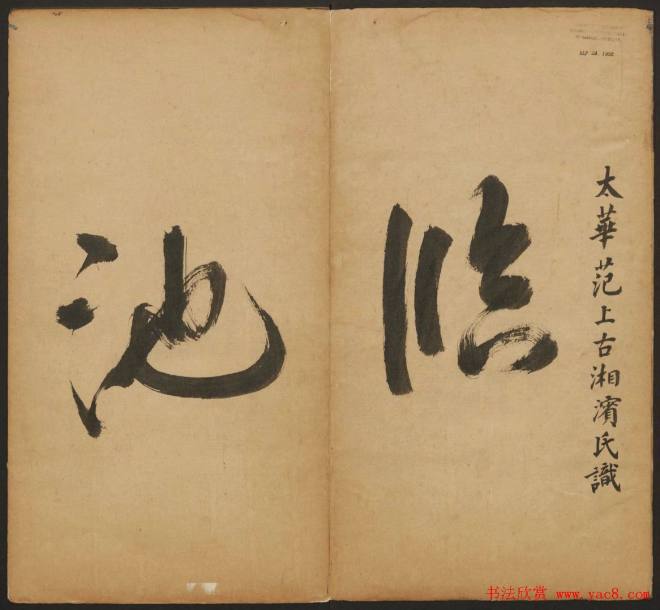 太華范上古湘濱氏識
临
池
书法欣赏 www.yac8.com